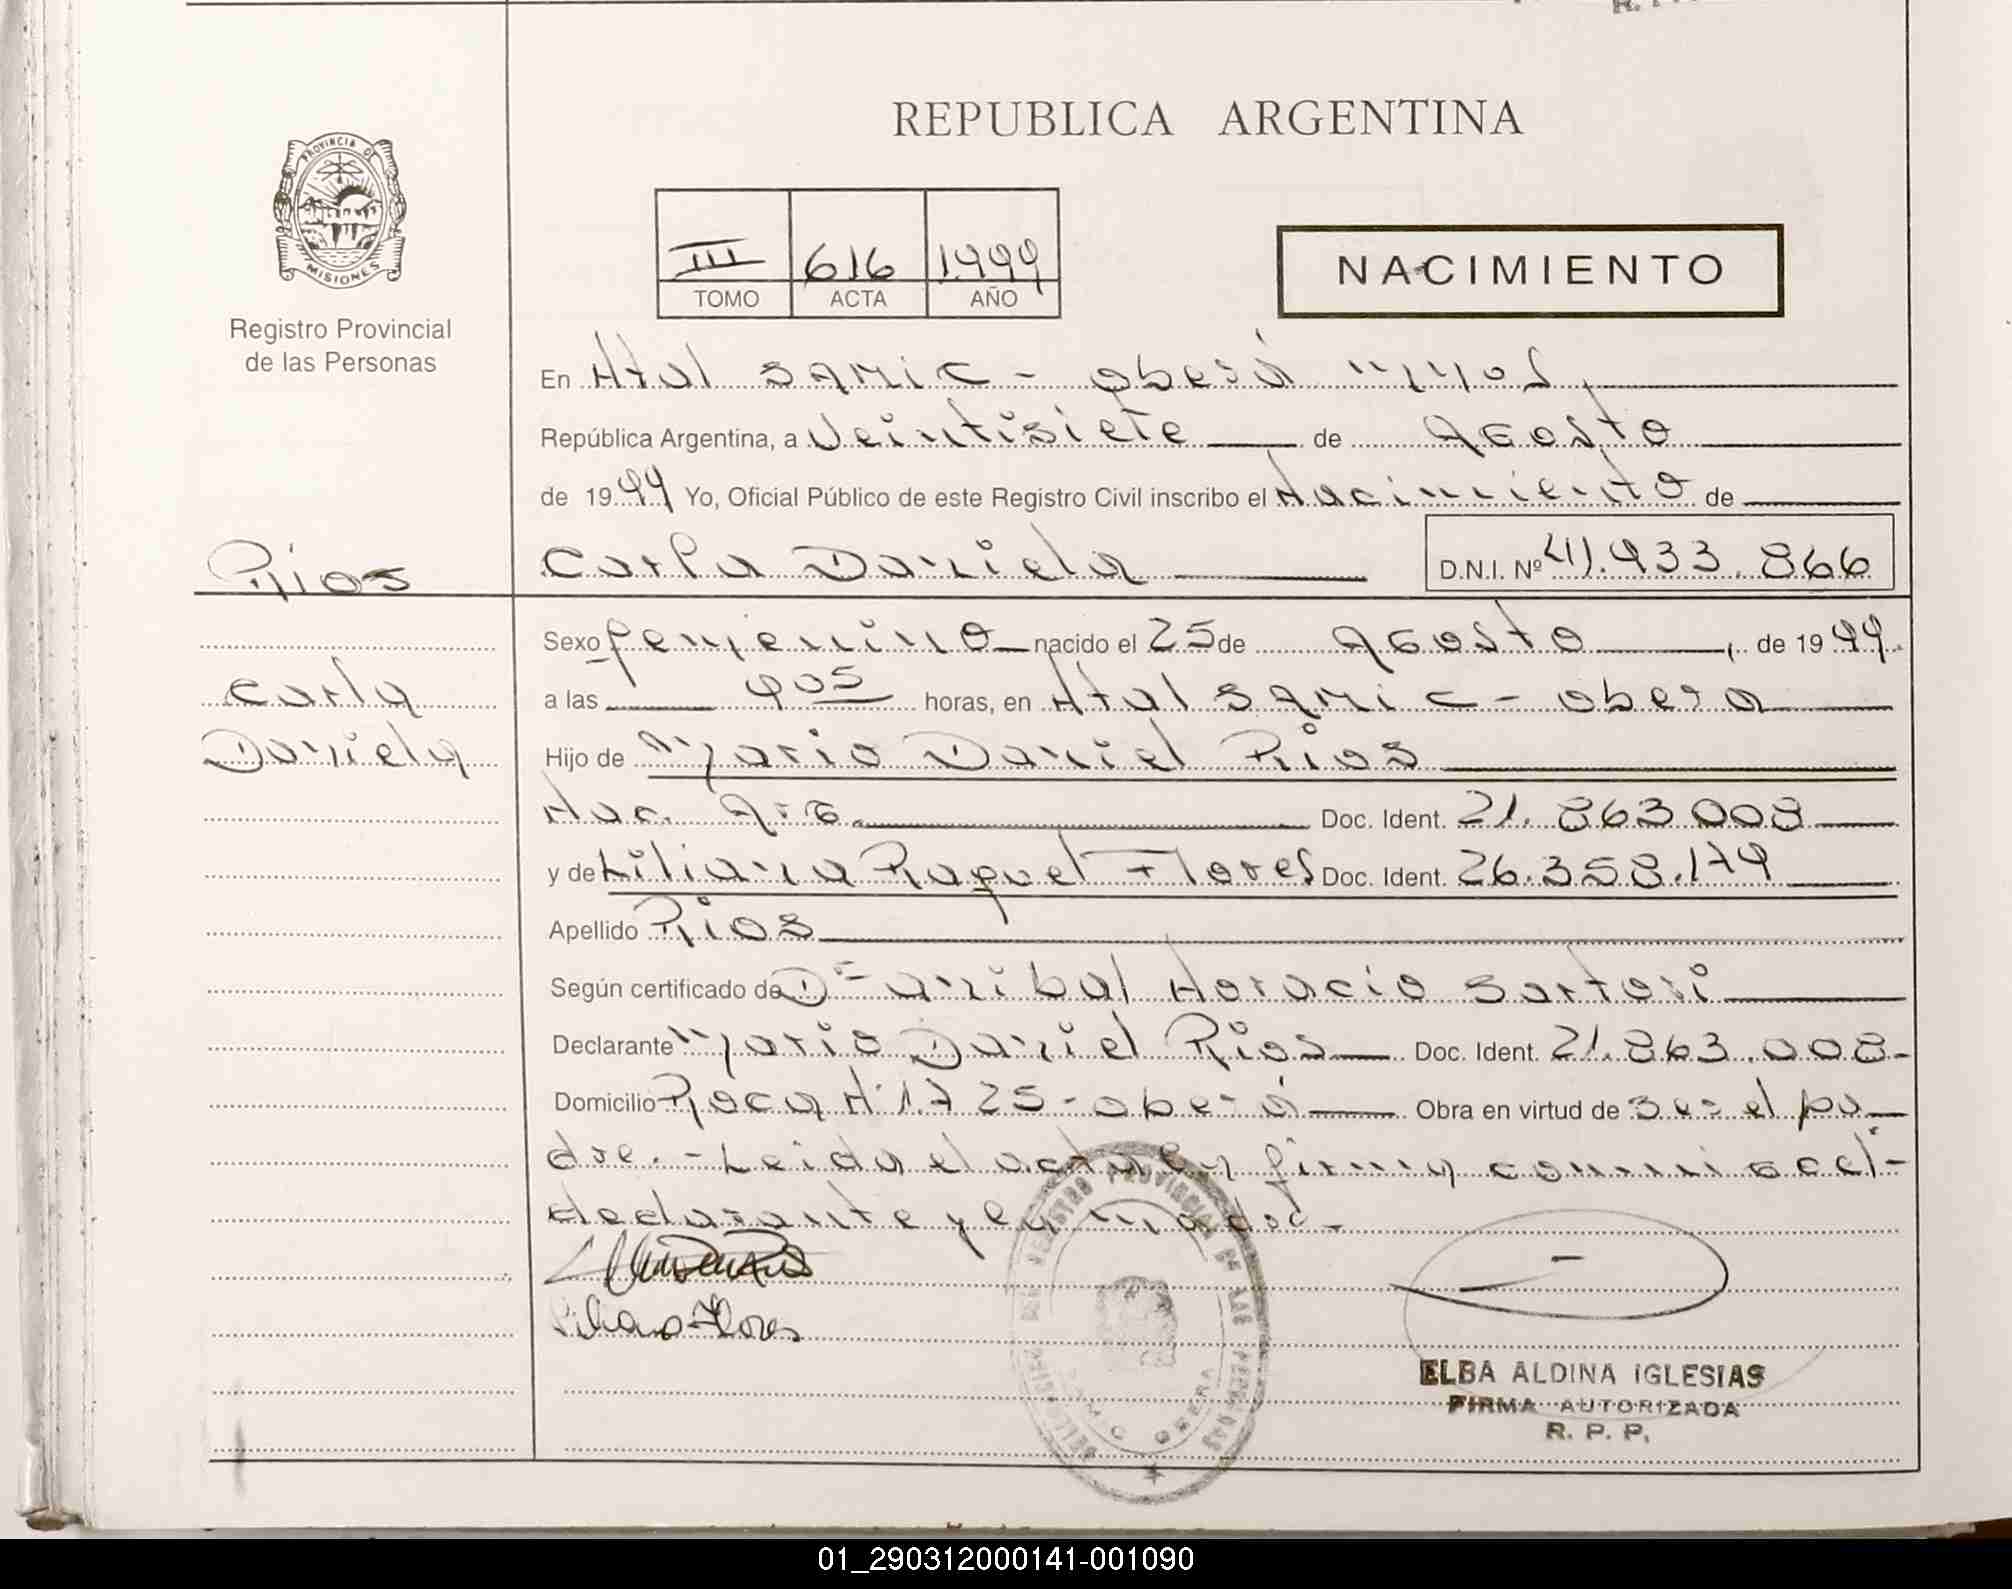 REPUBLICA ARGENTINA
PROVINCIA DE
MISIONES
Registro Provincial
de las Personas
III 616 1999
TOMO ACTA AÑO
NACIMIENTO
En Htal SAMIC - Oberá Mnes
República Argentina, a Veintisiete de Agosto
de 1999 Yo, Oficial Público de este Registro Civil inscribo el Nacimiento de
Rios
Carla Daniela D.N.I. Nº 41.933.866
Sexo femenino nacido el 25 de Agosto, de 1999.
Carla
a las 905 horas, en Htal SAMIC - Obera
Daniela
Hijo de Mario Daniel Rios
Nac. Arg. Doc. Ident. 21.863.008
y de Liliana Raquel Flores Doc. Ident. 26.358.179
Apellido Rios
Según certificado de Dr Anibal Horacio Sartori
Declarante Mario Daniel Rios Doc. Ident. 21.863.008-
Domicilio Roca Nº 1725 - Oberá Obra en virtud de ser el pa
dre.- Leida el acta la firma conmigo el
declarante y la madre.-
Liliana Flores
REGISTRO PROVINCIAL DE LAS PERSONAS
OBERA
ELBA ALDINA IGLESIAS
FIRMA AUTORIZADA
R. P. P.
01_290312000141-001090